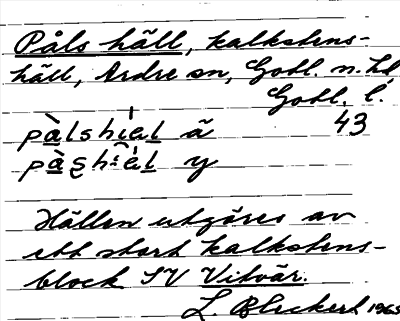 Påls häll, kalkstens-
häll, Ardre sn, Gotl. n. hd,
Gotl. l.
43
pàlshɩ̀al ä
pàʂhɩàl y
Hällen utgöres av
ett stort kalkstens-
block SV Vitvär.
L. Blickert 1965